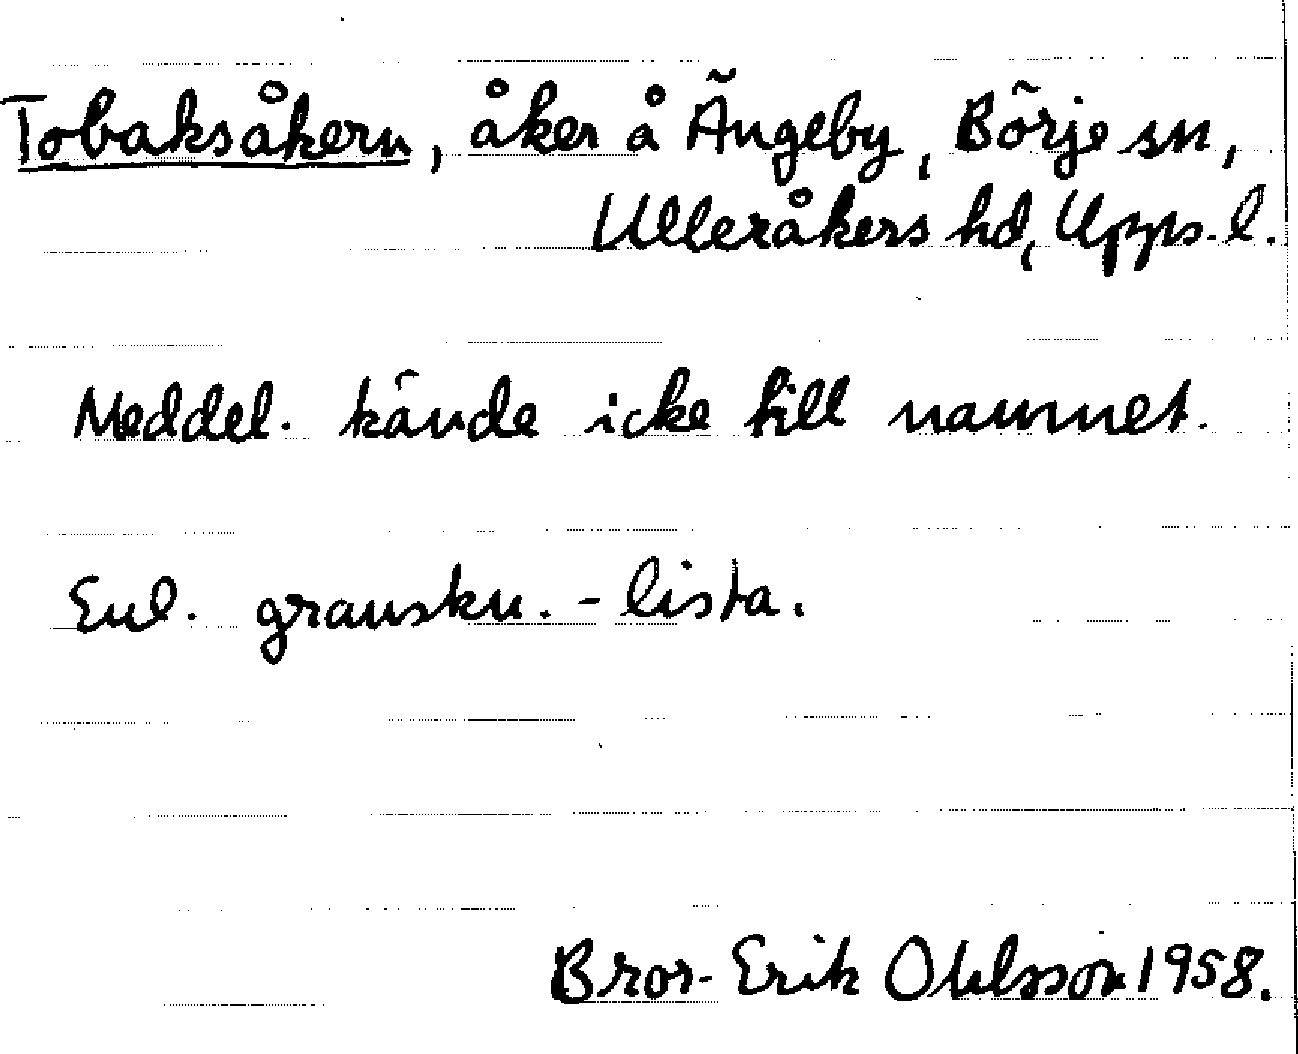 Tobaksåkern, åker å Ängeby, Börje sn,
Ulleråkers hd, Upps. l.
Meddel. kände icke till namnet.
Enl. granskn. - lista.
Bror-Erik Ohlsson 1958.